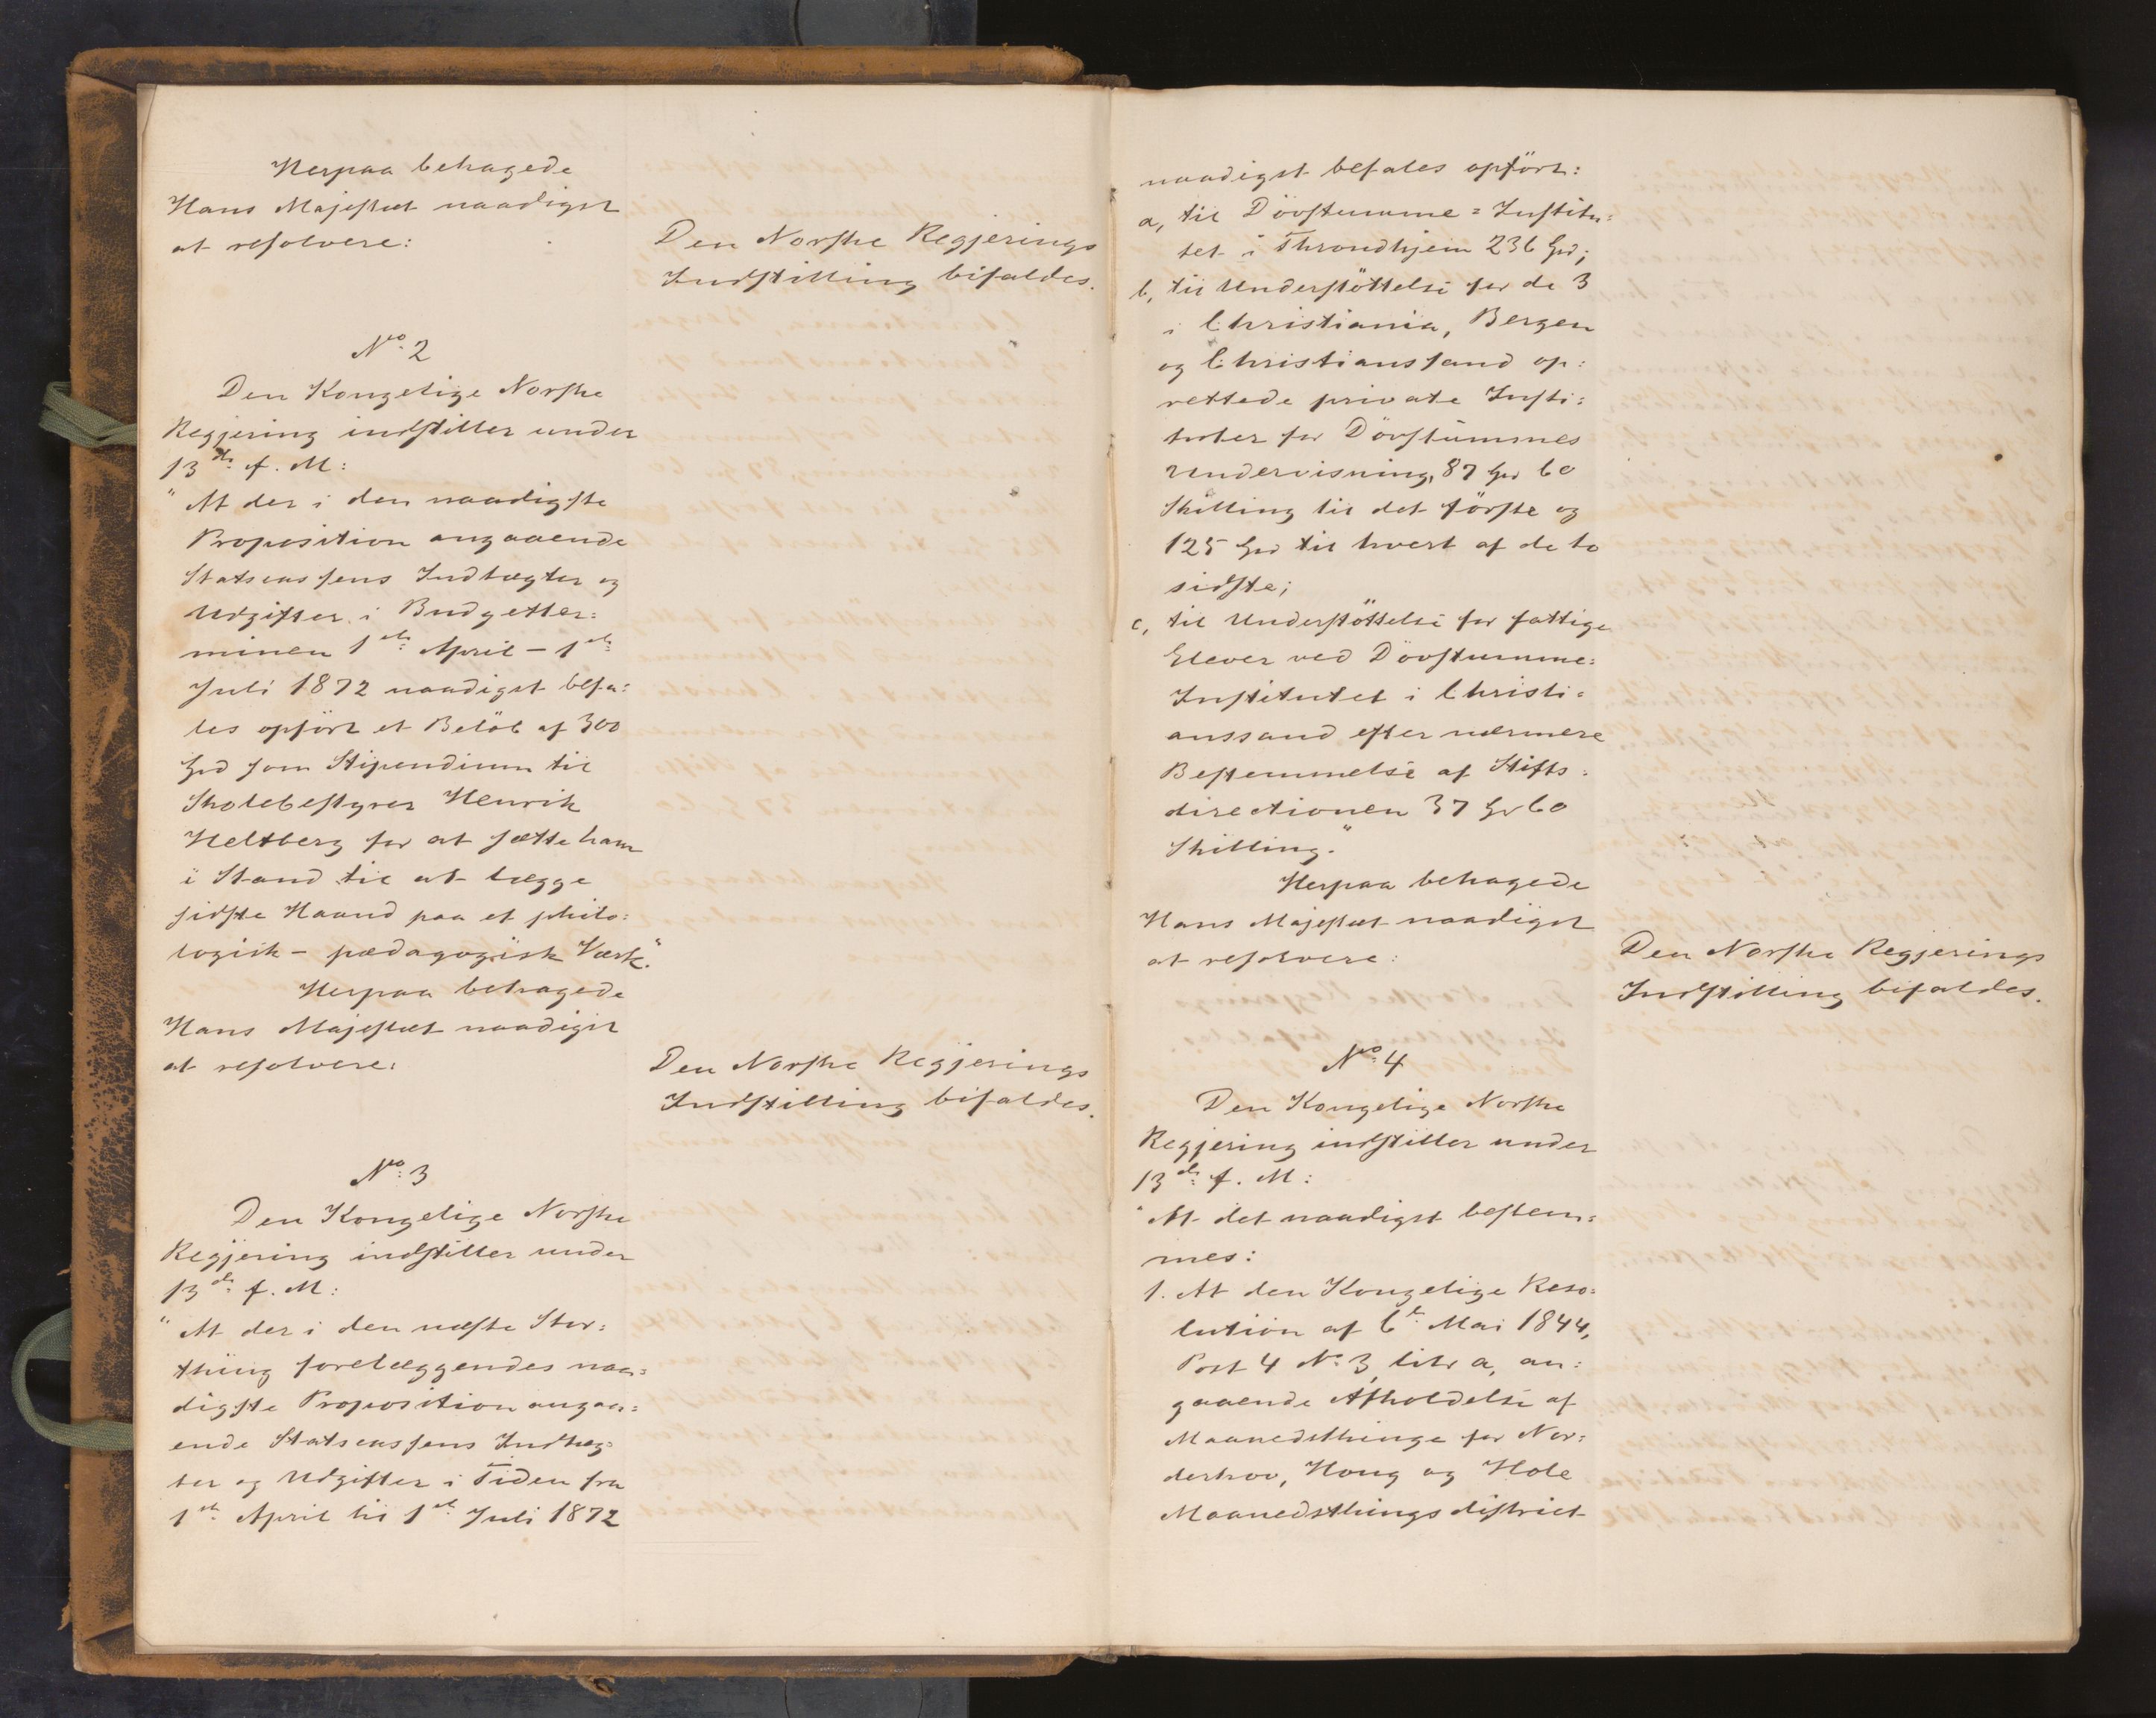 Herpaa behagede
Hans Majestæt naadigst
at resolvere:
Den Norske Regjerings
Indstilling bifaldes.
No. 2
Den Kongelige Norske
Regjering indstiller under
13de f. M:
"At der i den naadigste
Proposition angaaende
Statscassens Indtægter og
Udgifter i Budgetter=
minen 1ste April - 1ste
Juli 1872 naadigst befa=
les opført et Beløb af 300
Spd som Stipendium til
Skolebestyrer Henrik
Heltberg for at sætte ham
i Stand til at lægge
sidste Haand paa et philo=
logisk - pædagogisk Værk."
Herpaa behagede
Hans Majestæt naadigst
at resolvere:
Den Norske Regjerings
Indstilling bifaldes.
No. 3
Den Kongelige Norske
Regjering indstiller under
13de f. M:
"At der i den næste Stor=
thing forelæggendes naa=
digste Proposition angaa=
ende Statscassens Indtæg=
ter og Udgifter i Tiden fra
1ste April til 1ste Juli 1872
naadigst befales opført:
a, til Døvstumme=Institu=
tet i Throndhjem 236 Spd;
b, til Understøttelse for de 3
i Christiania, Bergen
og Christianssand op=
rettede private Insti=
tuter for Døvstummes
Undervisning, 87 Spd 60
Skilling til det første og
125 Spd til hvert af de to
sidste;
c, til Understøttelse for fattige
Elever ved Døvstumme=
Institutet i Christi=
anssand efter nærmere
Bestemmelse af Stifts=
directionen 37 Spd 60
Skilling."
Herpaa behagede
Hans Majestæt naadigst
at resolvere:
Den Norske Regjerings
Indstilling bifaldes.
No. 4
Den Kongelige Norske
Regjering indstiller under
13de f. M:
"At det naadigst bestem=
mes:
1. At den Kongelige Reso=
lution af 6te Mai 1844,
Post 4 No. 3, litr a, an=
gaaende Afholdelse af
Maanedsthinge for Nor=
derhov, Houg og Hole
Maanedsthingsdistrict